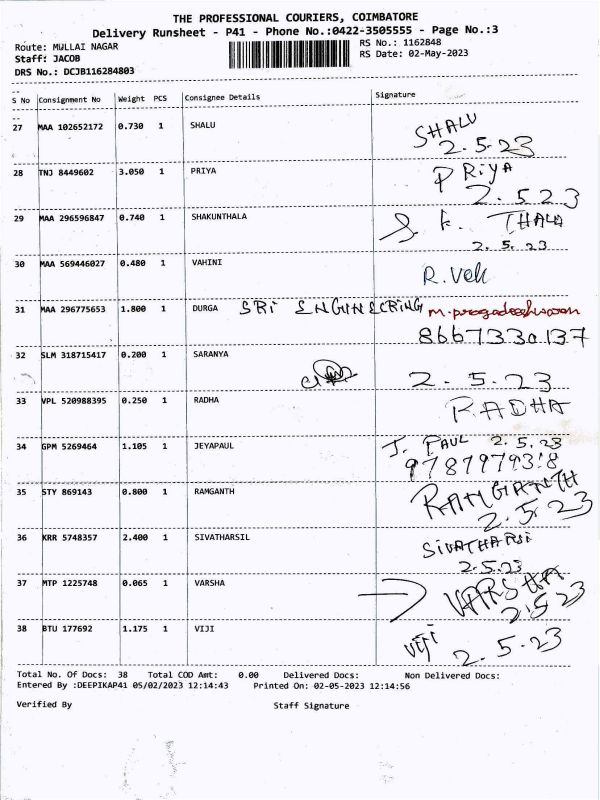 THE PROFESSIONAL COURIERS, COIMBATORE
Delivery Runsheet - P41 - Phone No.:0422-3505555 - Page No.:3
Route: MULLAI NAGAR
RS No.: 1162848
Staff: JACOB
RS Date: 02-May-2023
DRS No.: DCJB116284803
S No Consignment No Weight PCS Consignee Details Signature
27 MAA 102652172 0.730 1 SHALU SHALU
2.5.23
28 TNJ 8449602 3.050 1 PRIYA PRiYA
2.523
29 MAA 296596847 0.740 1 SHAKUNTHALA S. k. THALA
2.5.23
30 MAA 569446027 0.480 1 VAHINI R.
31 MAA 296775653 1.800 1 DURGA SRi ENGINEERING
8667330137
32 SLM 318715417 0.200 1 SARANYA
2.5.23
33 VPL 520988395 0.250 1 RADHA RADHA
34 GPM 5269464 1.105 1 JEYAPAUL J. PAUL 2.5.23
35 STY 869143 0.800 1 RAMGANTH RAMGANTH
2.5.23
36 KRR 5748357 2.400 1 SIVATHARSIL
2.5.23
37 MTP 1225748 0.065 1 VARSHA VARSHA
2.5.23
38 BTU 177692 1.175 1 VIJI VIJI
2.5.23
Total No. Of Docs: 38 Total COD Amt: 0.00 Delivered Docs: Non Delivered Docs:
Entered By :DEEPIKAP41 05/02/2023 12:14:43 Printed On: 02-05-2023 12:14:56
Verified By Staff Signature